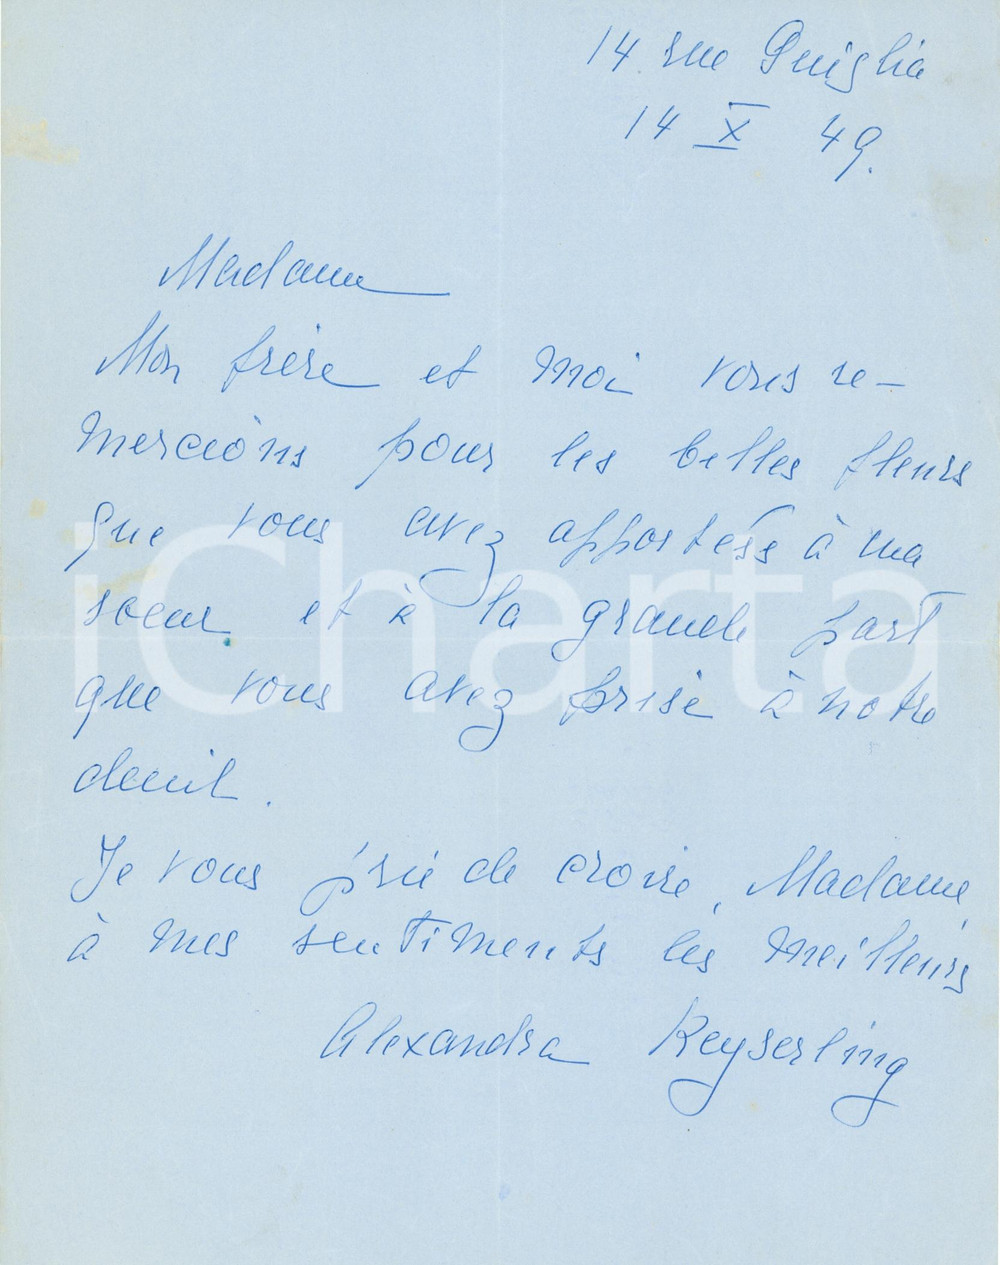 14 rue Guiglia
14 X 49.
Madame
Mon frère et moi vous re-
mercions pour les belles fleurs
que vous avez apportées à ma
sœur et à la grande part
que vous avez prise à notre
deuil.
Je vous prie de croire, Madame,
à mes sentiments les meilleurs
Alexandra Keyserling
iCharta